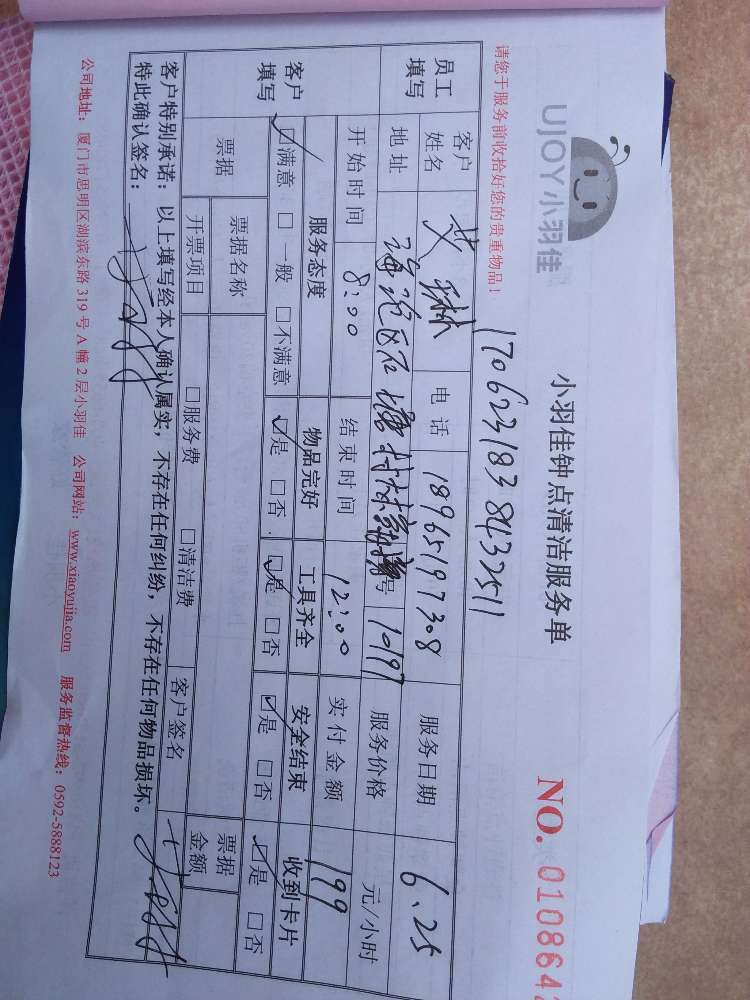 UJOY小羽佳
小羽佳钟点清洁服务单
NO. 010864
请您于服务前收拾好您的贵重物品!
1706231838432511
员工填写 客户姓名 林 电话 18965197308 服务日期 6.25
地址 海沧区石塘村 号 10197 服务价格 元/小时
开始时间 8:00 结束时间 12:00 实付金额 199
客户填写 服务态度 物品完好 工具齐全 安全结束 收到卡片
☑满意 □一般 □不满意 ☑是 □否 ☑是 □否 ☑是 □否 ☑是 □否
票据 票据名称 客户签名 票据金额
开票项目 □服务费 □清洁费
客户特别承诺:以上填写经本人确认属实,不存在任何纠纷,不存在任何物品损坏。
特此确认签名:
公司地址:厦门市思明区浏滨东路319号A幢2层小羽佳 公司网站:www.xiaoyujia.com 服务监督热线:0592-5888123